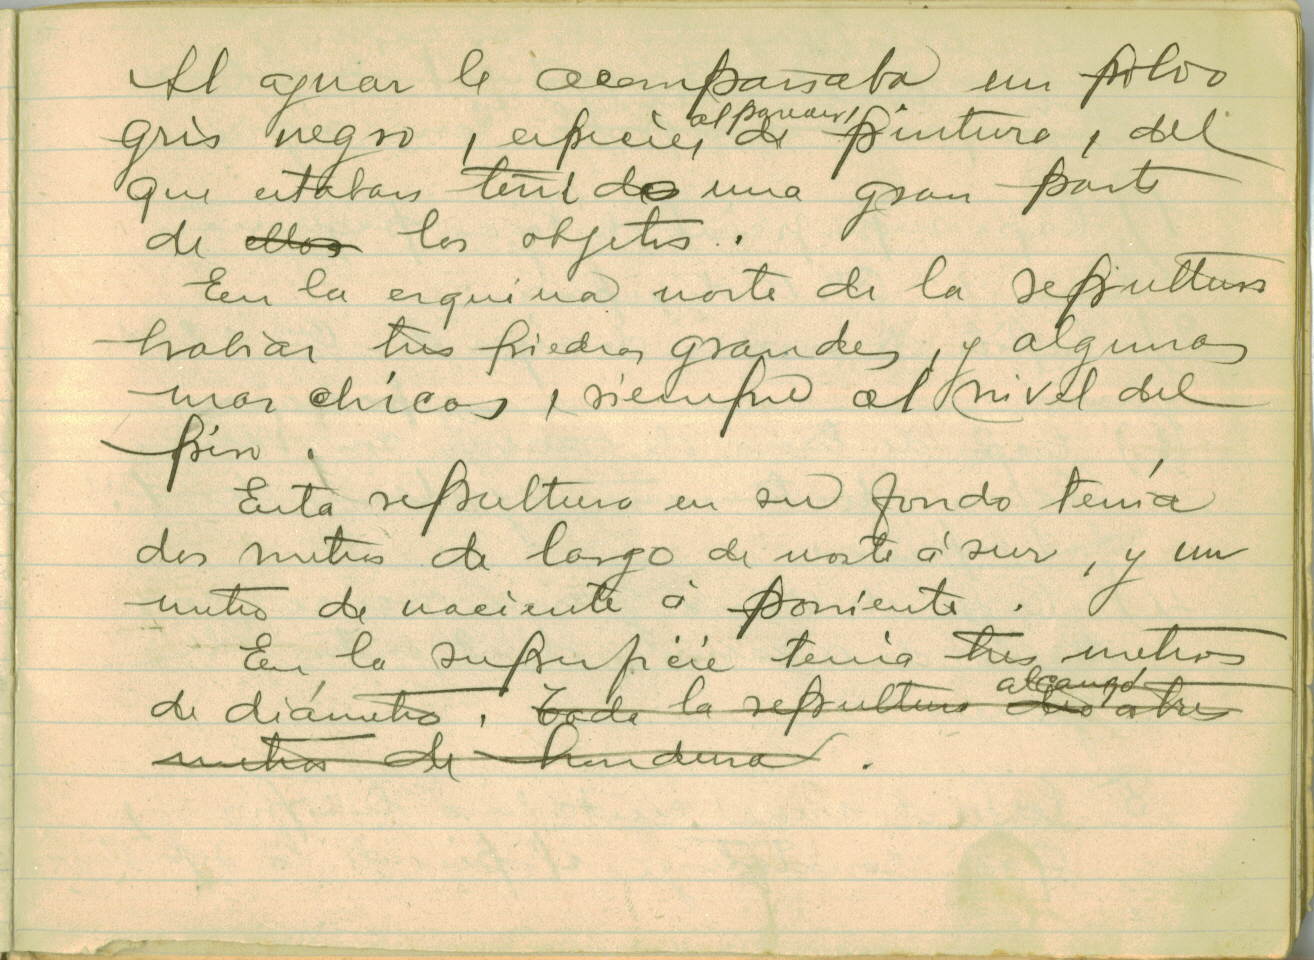 Al ajuar le acompañaba un polvo
gris negro, especie, al parecer, de pintura, del
que estaban teñidos una gran parte
de ellos los objetos.
En la esquina norte de la sepultura
habían tres piedras grandes, y algunas
mas chicas, siempre al nivel del
piso.
Esta sepultura en su fondo tenía
dos metros de largo de norte á sur, y un
metro de naciente á poniente.
En la superficie tenía tres metros
de diámetro. Toda la sepultura alcanzó a tres
metros de hondura.